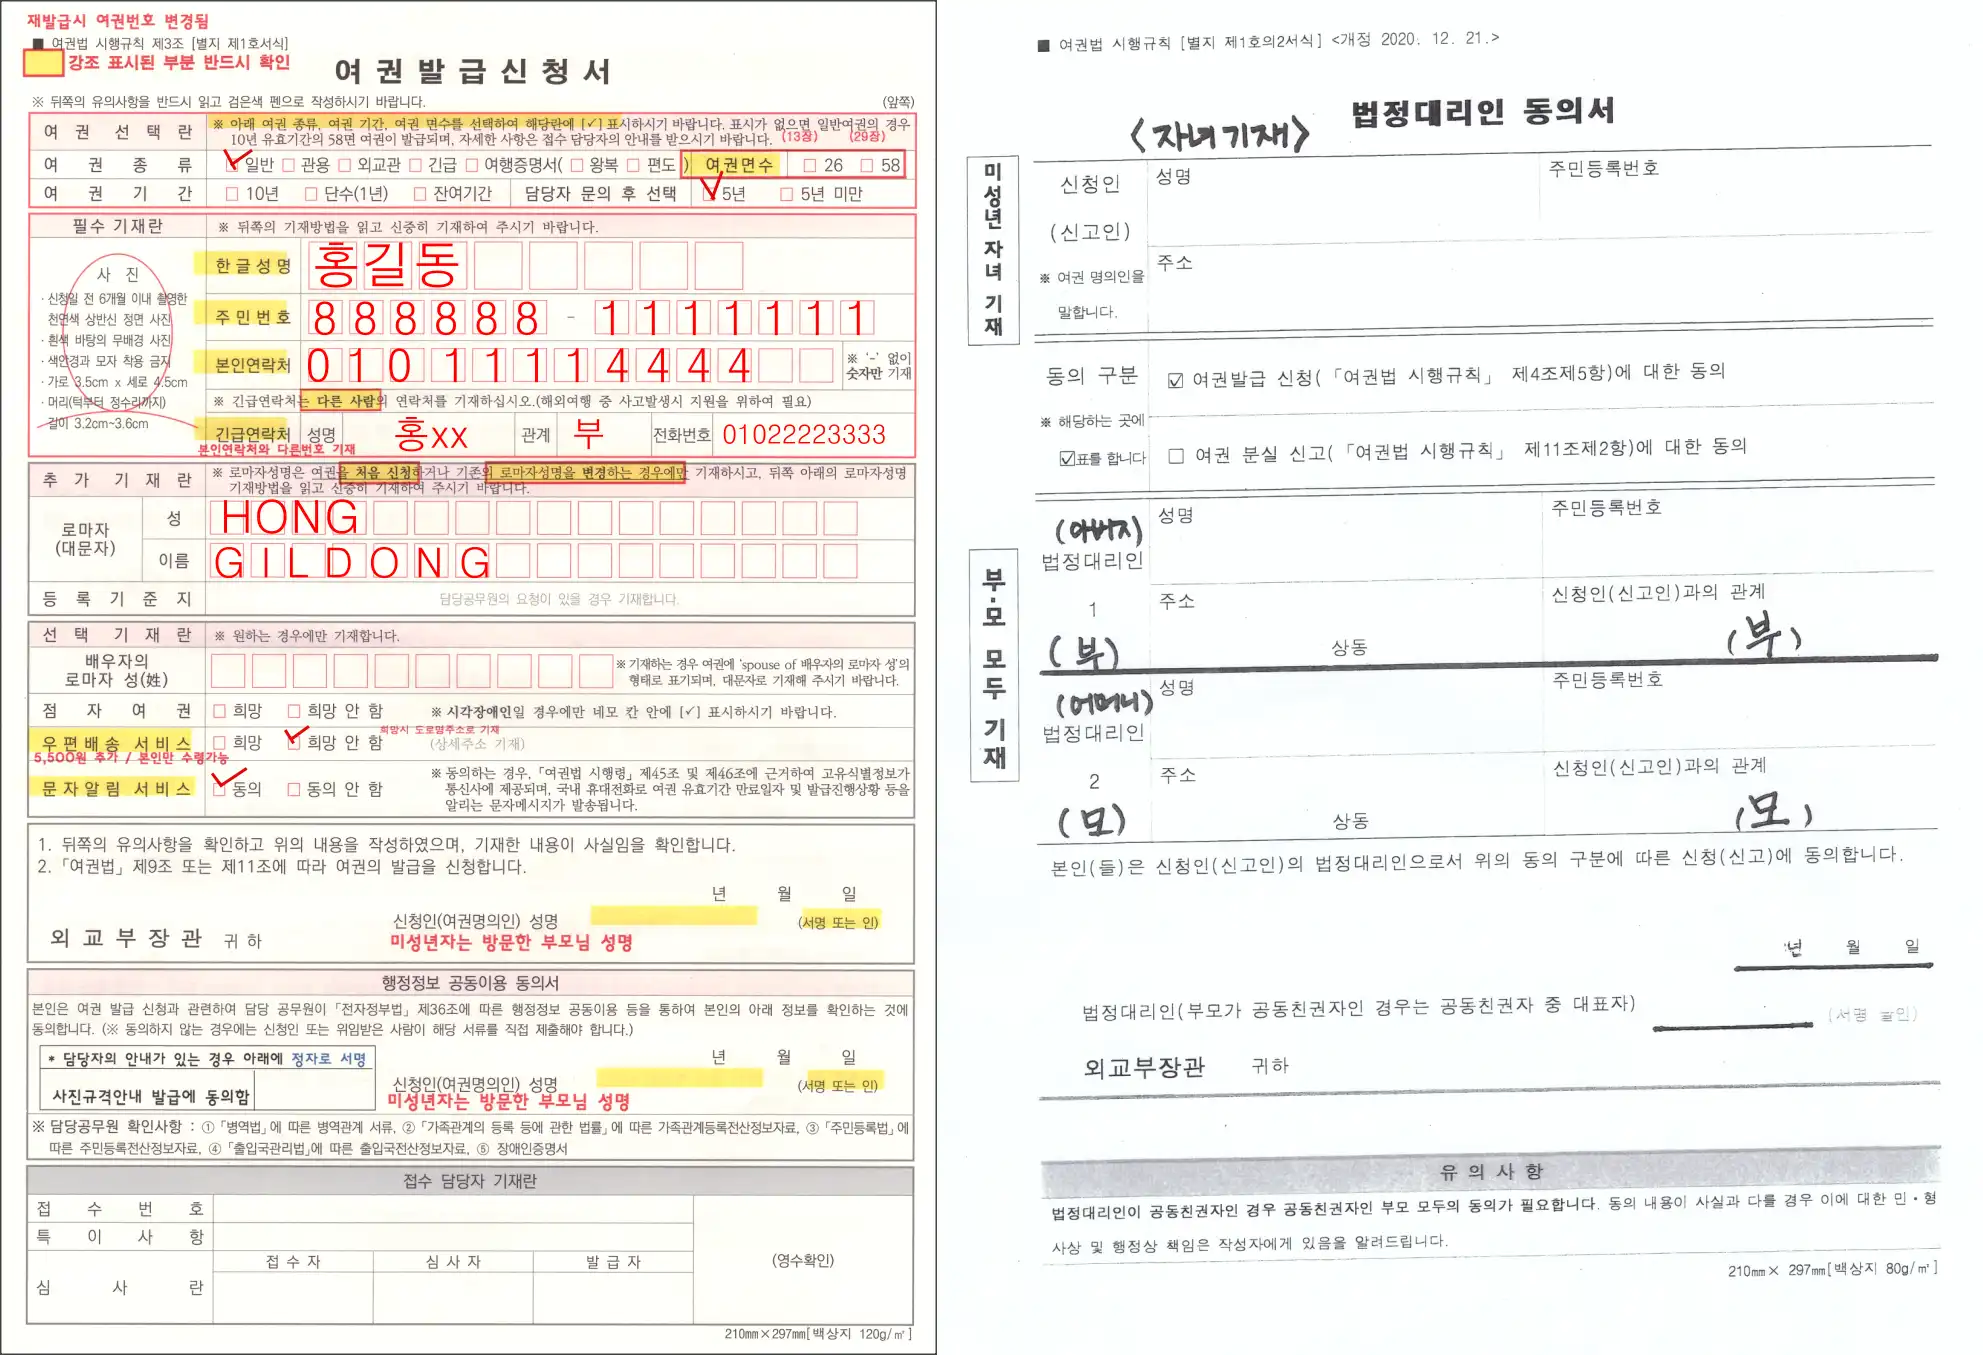 재발급시 여권번호 변경됨
■ 여권법 시행규칙 제3조 [별지 제1호서식]
강조 표시된 부분 반드시 확인
여권발급신청서
※ 뒤쪽의 유의사항을 반드시 읽고 검은색 펜으로 작성하시기 바랍니다. (앞쪽)
여 권 선 택 란 ※ 아래 여권 종류, 여권 기간, 여권 면수를 선택하여 해당란에 [✓] 표시하시기 바랍니다. 표시가 없으면 일반여권의 경우
10년 유효기간의 58면 여권이 발급되며, 자세한 사항은 접수 담당자의 안내를 받으시기 바랍니다. (13장) (29장)
여 권 종 류 ☑ 일반 □ 관용 □ 외교관 □ 긴급 □ 여행증명서( □ 왕복 □ 편도 ) 여권면수 □ 26 □ 58
여 권 기 간 □ 10년 □ 단수(1년) □ 잔여기간 담당자 문의 후 선택 ☑ 5년 □ 5년 미만
필수 기재란 ※ 뒤쪽의 기재방법을 읽고 신중히 기재하여 주시기 바랍니다.
사 진
· 신청일 전 6개월 이내 촬영한
천연색 상반신 정면 사진
· 흰색 바탕의 무배경 사진
· 색안경과 모자 착용 금지
· 가로 3.5cm x 세로 4.5cm
· 머리(턱부터 정수리까지)
길이 3.2cm~3.6cm
한글성명 홍길동
주민번호 888888 - 1111111
본인연락처 01011114444 ※ '-' 없이
숫자만 기재
※ 긴급연락처는 다른 사람의 연락처를 기재하십시오.(해외여행 중 사고발생시 지원을 위하여 필요)
긴급연락처 성명 홍xx 관계 부 전화번호 01022223333
본인연락처와 다른번호 기재
추 가 기 재 란 ※ 로마자성명은 여권을 처음 신청하거나 기존의 로마자성명을 변경하는 경우에만 기재하시고, 뒤쪽 아래의 로마자성명
기재방법을 읽고 신중히 기재하여 주시기 바랍니다.
로마자
(대문자)
성 HONG
이름 GILDONG
등 록 기 준 지 담당공무원의 요청이 있을 경우 기재합니다.
선 택 기 재 란 ※ 원하는 경우에만 기재합니다.
배우자의
로마자 성(姓)
※ 기재하는 경우 여권에 'spouse of 배우자의 로마자 성'의
형태로 표기되며, 대문자로 기재해 주시기 바랍니다.
점 자 여 권 □ 희망 □ 희망 안 함 ※ 시각장애인일 경우에만 네모 칸 안에 [✓] 표시하시기 바랍니다.
우편배송 서비스 □ 희망 ☑ 희망 안 함 희망시 도로명주소로 기재
(상세주소 기재)
5,500원 추가 / 본인만 수령가능
문자알림 서비스 ☑ 동의 □ 동의 안 함
※ 동의하는 경우, 「여권법 시행령」 제45조 및 제46조에 근거하여 고유식별정보가
통신사에 제공되며, 국내 휴대전화로 여권 유효기간 만료일자 및 발급진행상황 등을
알리는 문자메시지가 발송됩니다.
1. 뒤쪽의 유의사항을 확인하고 위의 내용을 작성하였으며, 기재한 내용이 사실임을 확인합니다.
2. 「여권법」 제9조 또는 제11조에 따라 여권의 발급을 신청합니다.
년 월 일
신청인(여권명의인) 성명 (서명 또는 인)
미성년자는 방문한 부모님 성명
외교부장관 귀하
행정정보 공동이용 동의서
본인은 여권 발급 신청과 관련하여 담당 공무원이 「전자정부법」 제36조에 따른 행정정보 공동이용 등을 통하여 본인의 아래 정보를 확인하는 것에
동의합니다. (※ 동의하지 않는 경우에는 신청인 또는 위임받은 사람이 해당 서류를 직접 제출해야 합니다.)
* 담당자의 안내가 있는 경우 아래에 정자로 서명
사진규격안내 발급에 동의함
년 월 일
신청인(여권명의인) 성명 (서명 또는 인)
미성년자는 방문한 부모님 성명
※ 담당공무원 확인사항 : ① 「병역법」에 따른 병역관계 서류, ② 「가족관계의 등록 등에 관한 법률」에 따른 가족관계등록전산정보자료, ③ 「주민등록법」에
따른 주민등록전산정보자료, ④ 「출입국관리법」에 따른 출입국전산정보자료, ⑤ 장애인증명서
접수 담당자 기재란
접 수 번 호
특 이 사 항
심 사 란
접 수 자 심 사 자 발 급 자
(영수확인)
210mm×297mm[백상지 120g/㎡]
■ 여권법 시행규칙 [별지 제1호의2서식] <개정 2020. 12. 21.>
법정대리인 동의서
<자녀기재>
미성년자녀 기재
신청인
(신고인)
※ 여권 명의인을
말합니다.
성명
주민등록번호
주소
동의 구분
※ 해당하는 곳에
☑표를 합니다
☑ 여권발급 신청(「여권법 시행규칙」 제4조제5항)에 대한 동의
□ 여권 분실 신고(「여권법 시행규칙」 제11조제2항)에 대한 동의
부·모 모두 기재
(아버지)
법정대리인
1
(부)
성명
주민등록번호
주소
상동
신청인(신고인)과의 관계
(부)
(어머니)
법정대리인
2
(모)
성명
주민등록번호
주소
상동
신청인(신고인)과의 관계
(모)
본인(들)은 신청인(신고인)의 법정대리인으로서 위의 동의 구분에 따른 신청(신고)에 동의합니다.
년 월 일
법정대리인(부모가 공동친권자인 경우는 공동친권자 중 대표자) (서명 날인)
외교부장관 귀하
유의사항
법정대리인이 공동친권자인 경우 공동친권자인 부모 모두의 동의가 필요합니다. 동의 내용이 사실과 다를 경우 이에 대한 민·형
사상 및 행정상 책임은 작성자에게 있음을 알려드립니다.
210㎜× 297㎜[백상지 80g/㎡]